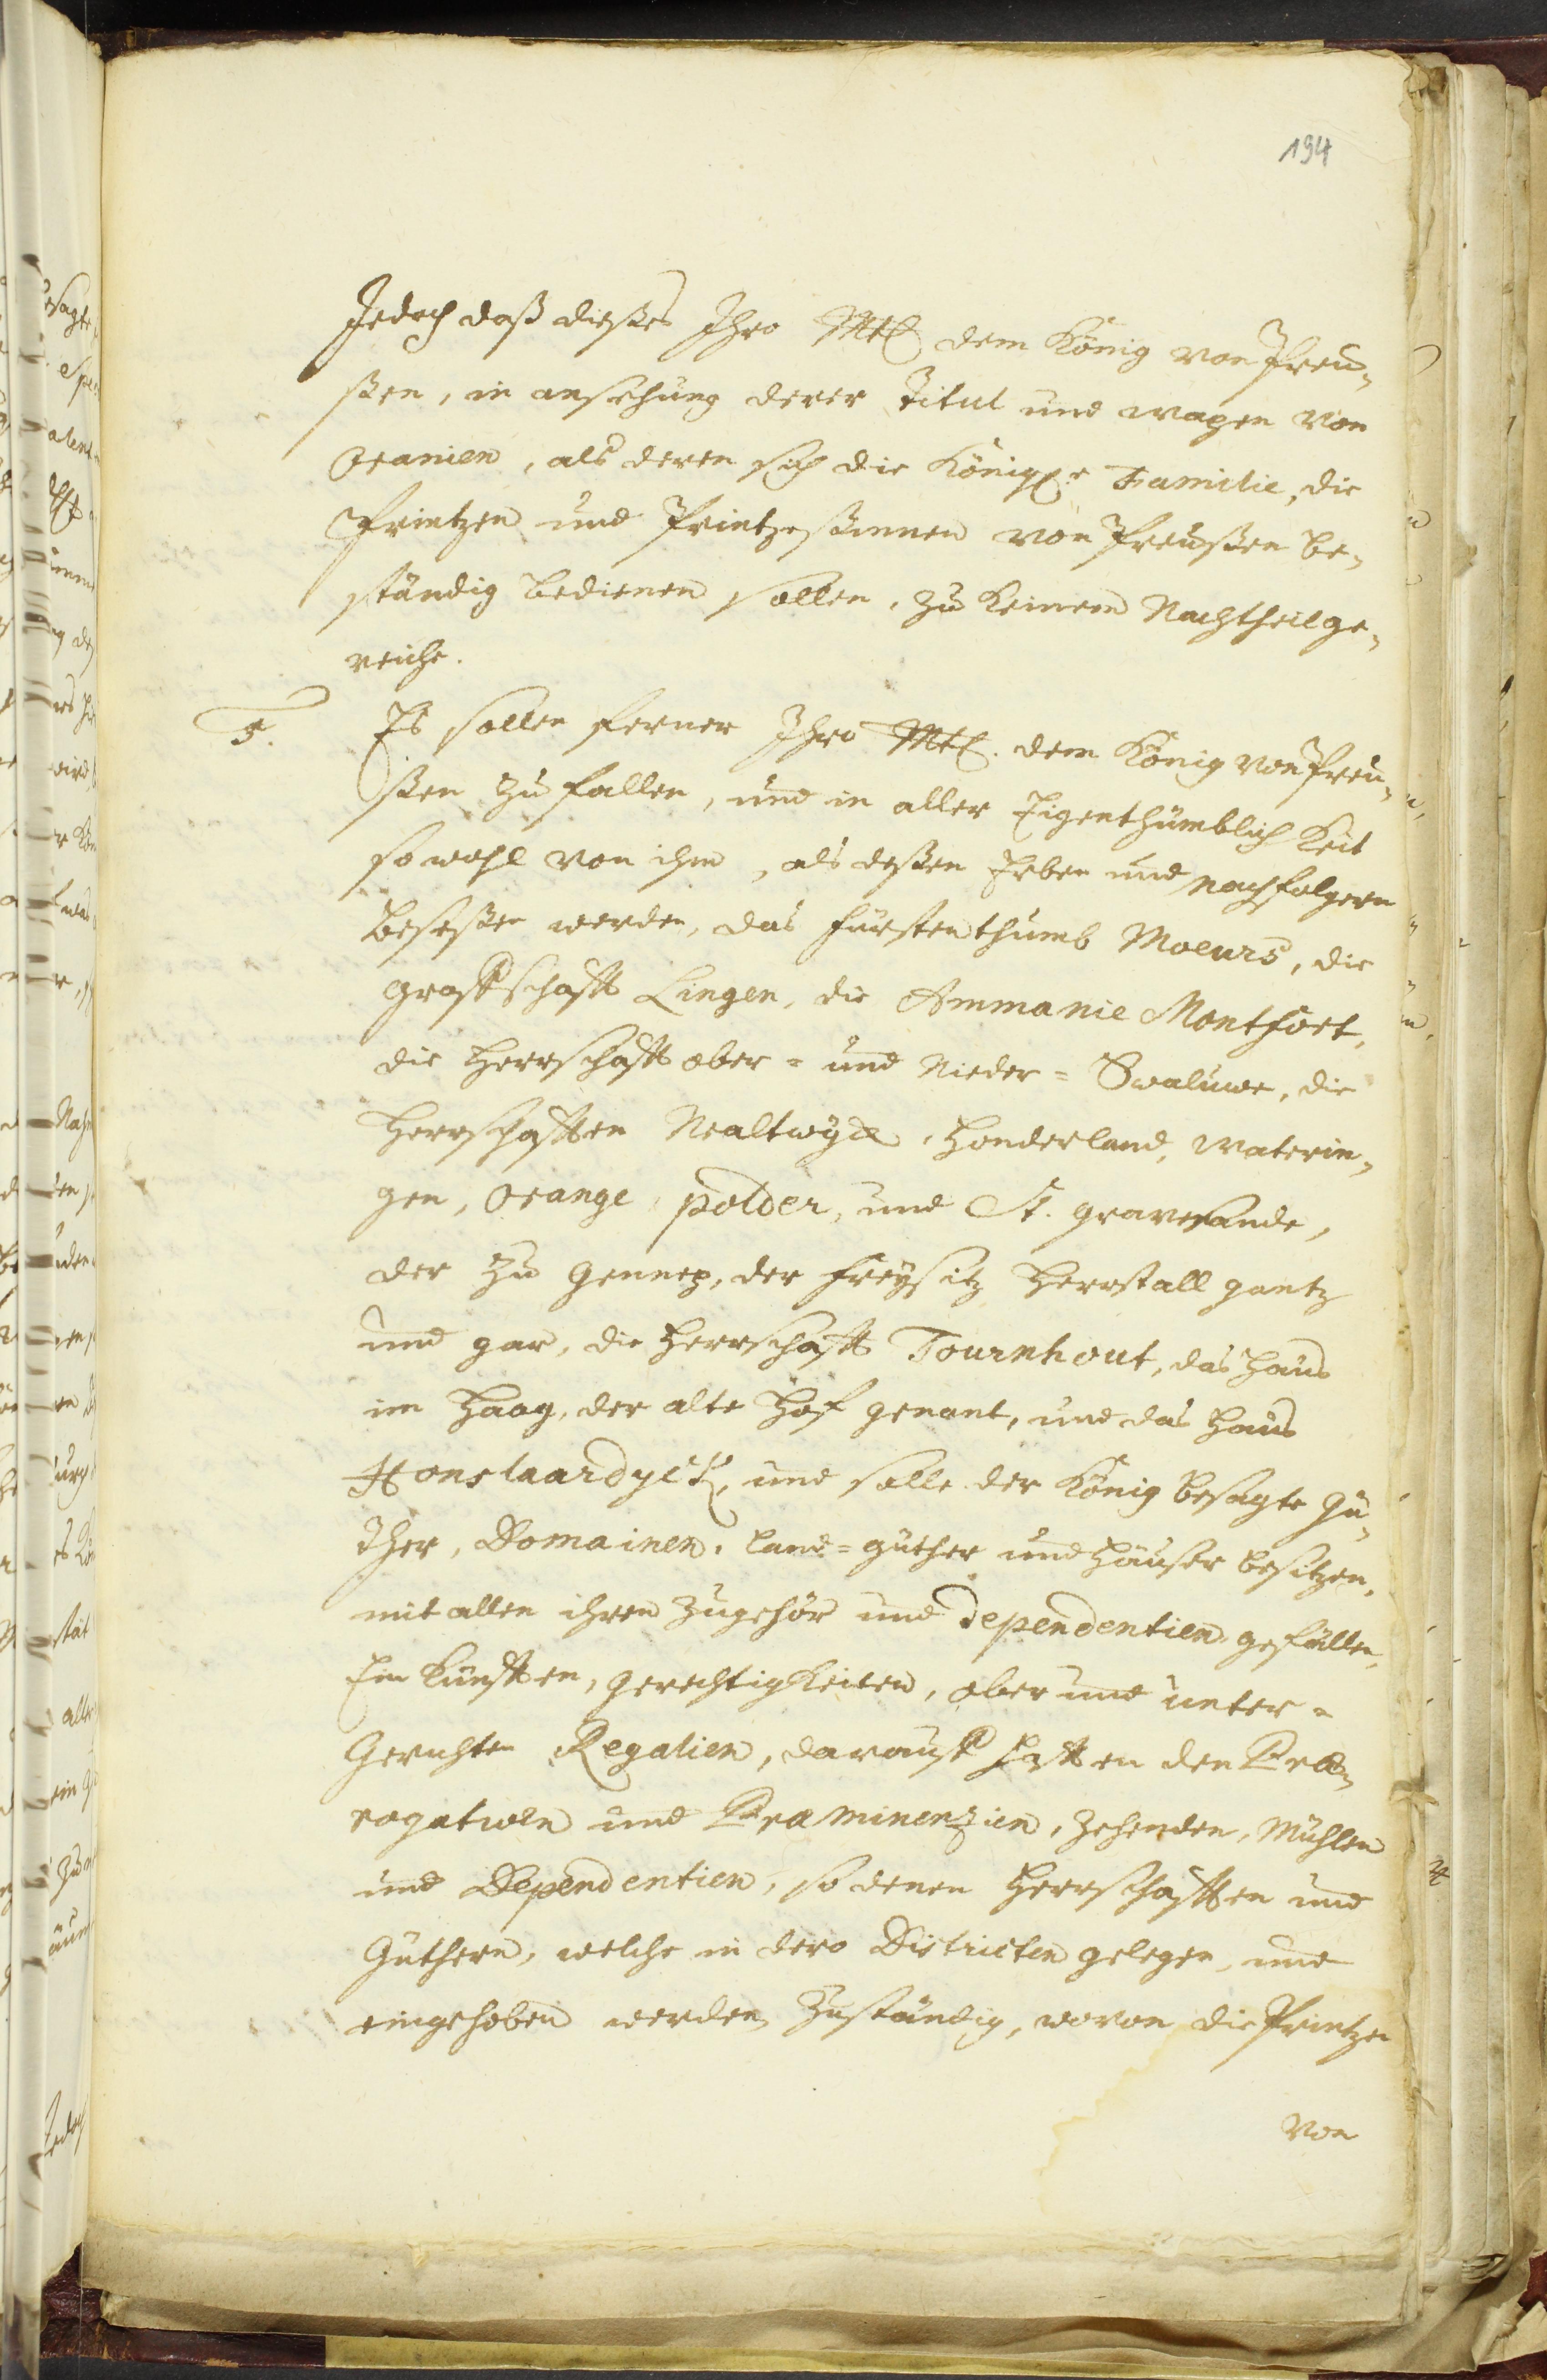 194
Jedoch daß dießes Ihro Mtl dem König von Preu-
ßen, in ansehung derer Titul und wapen von
Oranien, als deren sich die Königl.e Familie, die
Printzen und Printzeßinnen von Preußen be-
ständig bedienen sollen, zu keinem Nachtheil ge-
reiche.
5. Es sollen ferner Ihro Mtl. dem König von Preu-
ßen zu fallen, und in aller Eigenthümblichkeit
sowohl von ihm, als deßen Erben und nachfolgern
beseßen werden, das fürstenthumb Moeurs, die
graffschafft Lingen, die Ammanie Montfort,
die Herrschafft ober- und Nieder- Swaluwe, die
Herrschafften Naaltwyck, Honderland, Waterin-
gen, Orange, polder, und St. gravesande,
der Zu Gennep, der freysitz Herrstall gantz
und gar, die Herrschafft Tournhout, das Haus
im Haag, der alte Hof genant, und das Haus
Honslaardyck, und solle der König besagte Gü-
ther, Domainen, land-güther und Häußer besitzen,
mit allen ihren Zugehör und dependentien, gefällen,
Einkünfften, gerechtigkeiten, ober und unter-
Gerichten Regalien, darauff hafften den Præ-
rogativen und Præminenzien, Zehenden, Mühlen
und Dependentien, so denen Herrschafften und
Güthern, welche in dero Districten gelegen, und
eingehoben werden, zuständig, wovon die Printzen
von